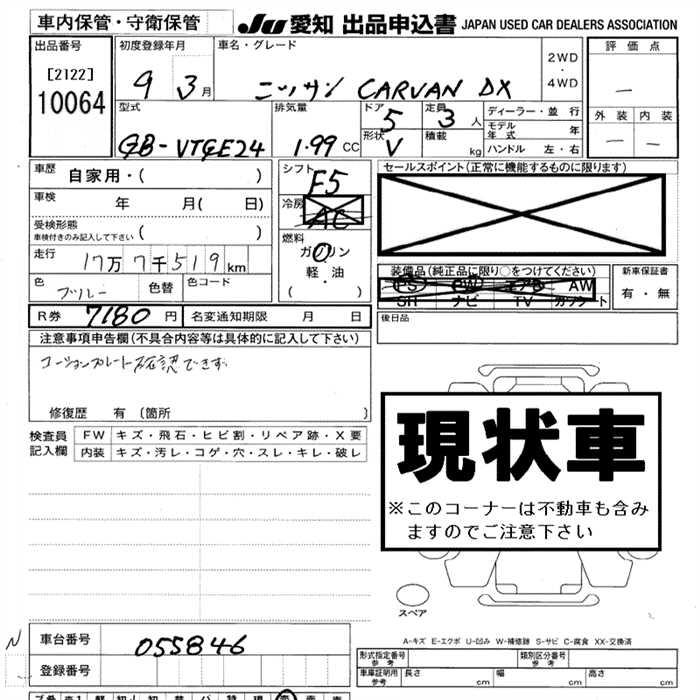 車内保管・守衛保管
JU 愛知 出品申込書 JAPAN USED CAR DEALERS ASSOCIATION
出品番号
[2122]
10064
初度登録年月
9 3月
車名・グレード
ニッサン CARVAN DX
2WD
・
4WD
評価点
—
外装 内装
— —
型式
GB-VTGE24
排気量
1.99 CC
ドア
5
形状
V
定員
3 人
積載
kg
ディーラー・並行
モデル年式 年
ハンドル 左・右
車歴
自家用・( )
車検
年 月( 日)
受検形態
車検付きのみ記入して下さい ( )
走行
17万7千519km
色
ブルー
色替
色コード
シフト
F5
冷房
AC
燃料
ガソリン
軽・油
( ・ )
セールスポイント(正常に機能するものに限ります)
装備品(純正品に限り○をつけてください)
PS PW エアB AW
SH ナビ TV カワシート
新車保証書
有・無
R券 7180円
名変通知期限 月 日
後日品
注意事項申告欄(不具合内容等は具体的に記入して下さい)
コーションプレート確認できず
修復歴 有 (箇所 )
検査員記入欄
FW キズ・飛石・ヒビ割・リペア跡・X要
内装 キズ・汚レ・コゲ・穴・スレ・キレ・破レ
現状車
※このコーナーは不動車も含み
ますのでご注意下さい
スペア
A-キズ E-エクボ U-凹み W-補修跡 S-サビ C-腐食 XX-交換済
N
車台番号
055846
登録番号
形式指定番号
参考
類別区分番号
参考
車庫証明用
参考
長さ cm
幅 cm
高さ cm